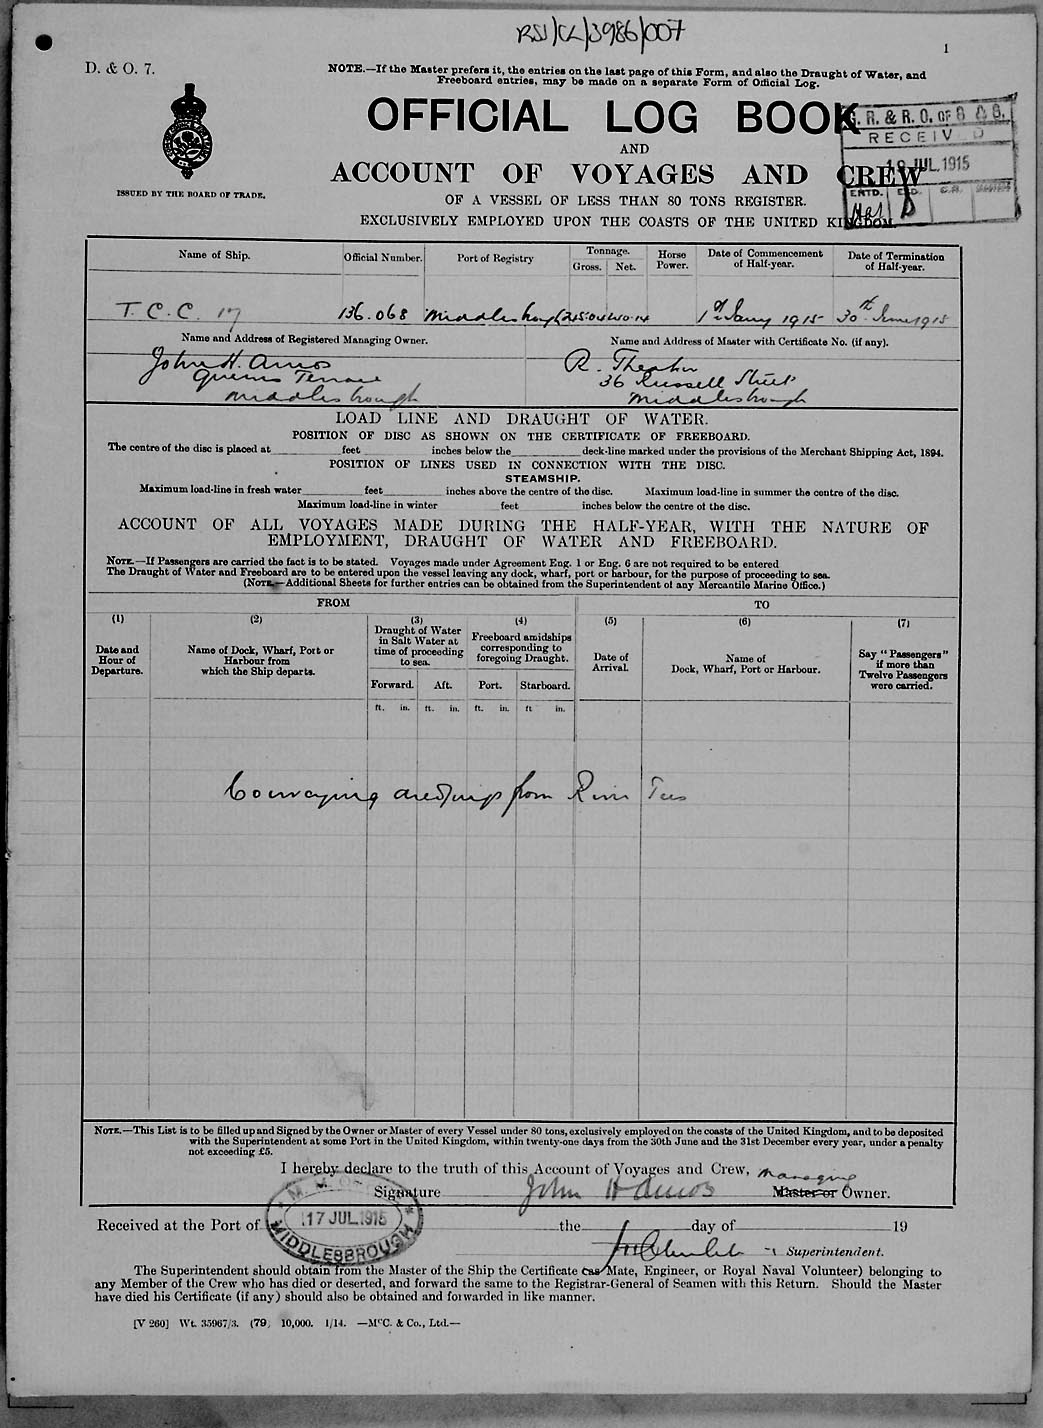 RSS/CL/3986/007
1
D. & O. 7.
NOTE.—If the Master prefers it, the entries on the last page of this Form, and also the Draught of Water, and
Freeboard entries, may be made on a separate Form of Official Log.
OFFICIAL LOG BOOK
AND
ACCOUNT OF VOYAGES AND CREW
OF A VESSEL OF LESS THAN 80 TONS REGISTER.
EXCLUSIVELY EMPLOYED UPON THE COASTS OF THE UNITED KINGDOM.
ISSUED BY THE BOARD OF TRADE.
G. R. & R. O. OF S & S.
RECEIVED
19 JUL 1915
ENTD.
Name of Ship. Official Number. Port of Registry Tonnage. Horse Power. Date of Commencement of Half-year. Date of Termination of Half-year.
Gross. Net.
T.C.C. 17 136.068 Middlesbrough 1st Jany 1915 30th June 1915
Name and Address of Registered Managing Owner. Name and Address of Master with Certificate No. (if any).
John H. Amos R.
Queens Terrace 36 Russell Street
Middlesbrough Middlesbrough
LOAD LINE AND DRAUGHT OF WATER.
POSITION OF DISC AS SHOWN ON THE CERTIFICATE OF FREEBOARD.
The centre of the disc is placed at feet inches below the deck-line marked under the provisions of the Merchant Shipping Act, 1894.
POSITION OF LINES USED IN CONNECTION WITH THE DISC.
STEAMSHIP.
Maximum load-line in fresh water feet inches above the centre of the disc. Maximum load-line in summer the centre of the disc.
Maximum load-line in winter feet inches below the centre of the disc.
ACCOUNT OF ALL VOYAGES MADE DURING THE HALF-YEAR, WITH THE NATURE OF
EMPLOYMENT, DRAUGHT OF WATER AND FREEBOARD.
NOTE.—If Passengers are carried the fact is to be stated. Voyages made under Agreement Eng. 1 or Eng. 6 are not required to be entered
The Draught of Water and Freeboard are to be entered upon the vessel leaving any dock, wharf, port or harbour, for the purpose of proceeding to sea.
(NOTE.—Additional Sheets for further entries can be obtained from the Superintendent of any Mercantile Marine Office.)
FROM TO
(1) (2) (3) (4) (5) (6) (7)
Date and Hour of Departure. Name of Dock, Wharf, Port or Harbour from which the Ship departs. Draught of Water in Salt Water at time of proceeding to sea. Freeboard amidships corresponding to foregoing Draught. Date of Arrival. Name of Dock, Wharf, Port or Harbour. Say "Passengers" if more than Twelve Passengers were carried.
Forward. Aft. Port. Starboard.
ft. in. ft. in. ft. in. ft in.
Conveying dredgings from River Tees
NOTE.—This List is to be filled up and Signed by the Owner or Master of every Vessel under 80 tons, exclusively employed on the coasts of the United Kingdom, and to be deposited
with the Superintendent at some Port in the United Kingdom, within twenty-one days from the 30th June and the 31st December every year, under a penalty
not exceeding £5.
I hereby declare to the truth of this Account of Voyages and Crew, Managing
Signature John H Amos Master or Owner.
M. M. OFFICE
17 JUL.1915
MIDDLESBROUGH
Received at the Port of the day of 19
Superintendent.
The Superintendent should obtain from the Master of the Ship the Certificate (as Mate, Engineer, or Royal Naval Volunteer) belonging to
any Member of the Crew who has died or deserted, and forward the same to the Registrar-General of Seamen with this Return. Should the Master
have died his Certificate (if any) should also be obtained and forwarded in like manner.
[V 260] Wt. 35967/3. (79) 10,000. 1/14. —McC. & Co., Ltd.—